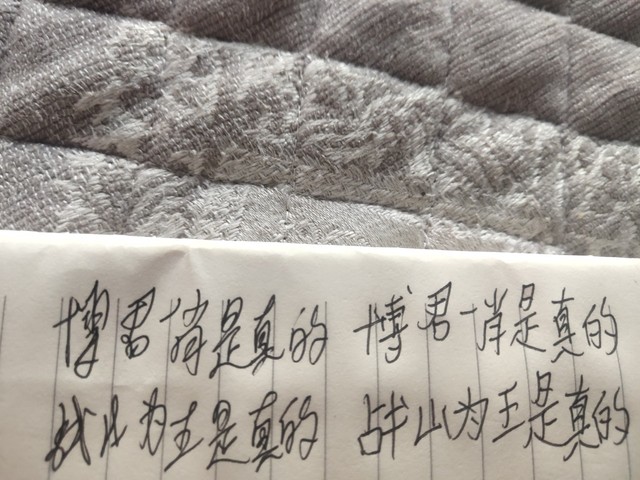 博君一肖是真的 博君一肖是真的
战山为王是真的 战山为王是真的